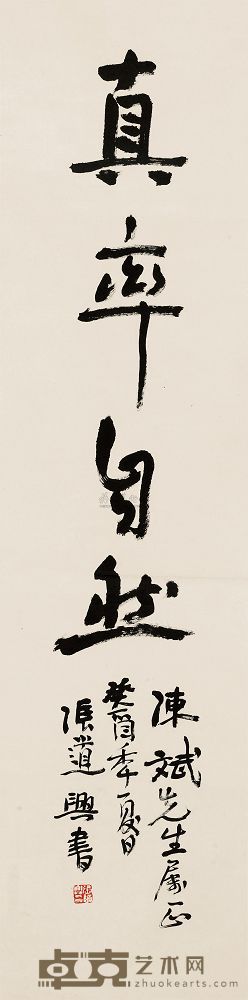 真率自然
陳斌先生屬正
癸酉年夏日
張道興書
卓克艺术网
zhuokearts.com